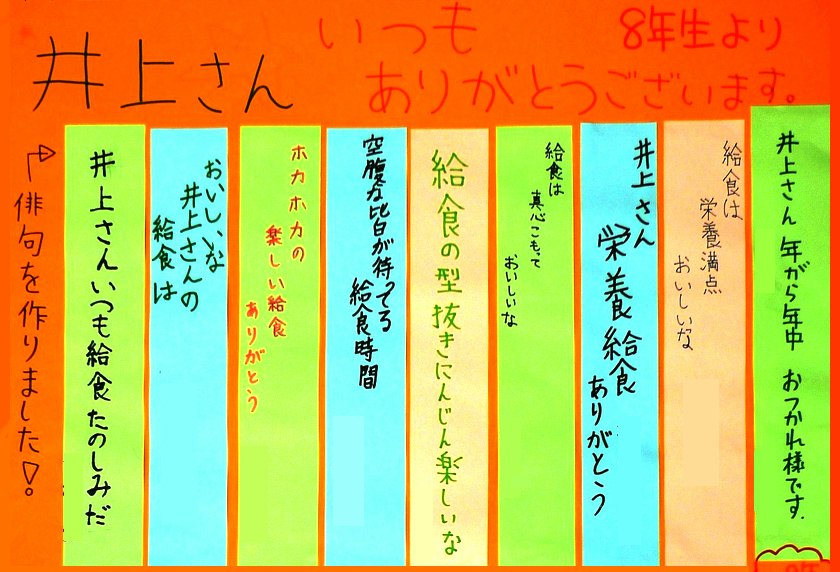 井上さん
いつも
8年生より
ありがとうございます。
井上さん 年がら年中 おつかれ様です。
給食は
栄養満点
おいしいな
井上さん
栄養給食
ありがとう
給食は
真心こもって
おいしいな
給食の型抜きにんじん楽しいな
空腹な皆が待ってる
給食時間
ホカホカの
楽しい給食
ありがとう
おいしいな
井上さんの
給食は
井上さんいつも給食たのしみだ
俳句を作りました!。